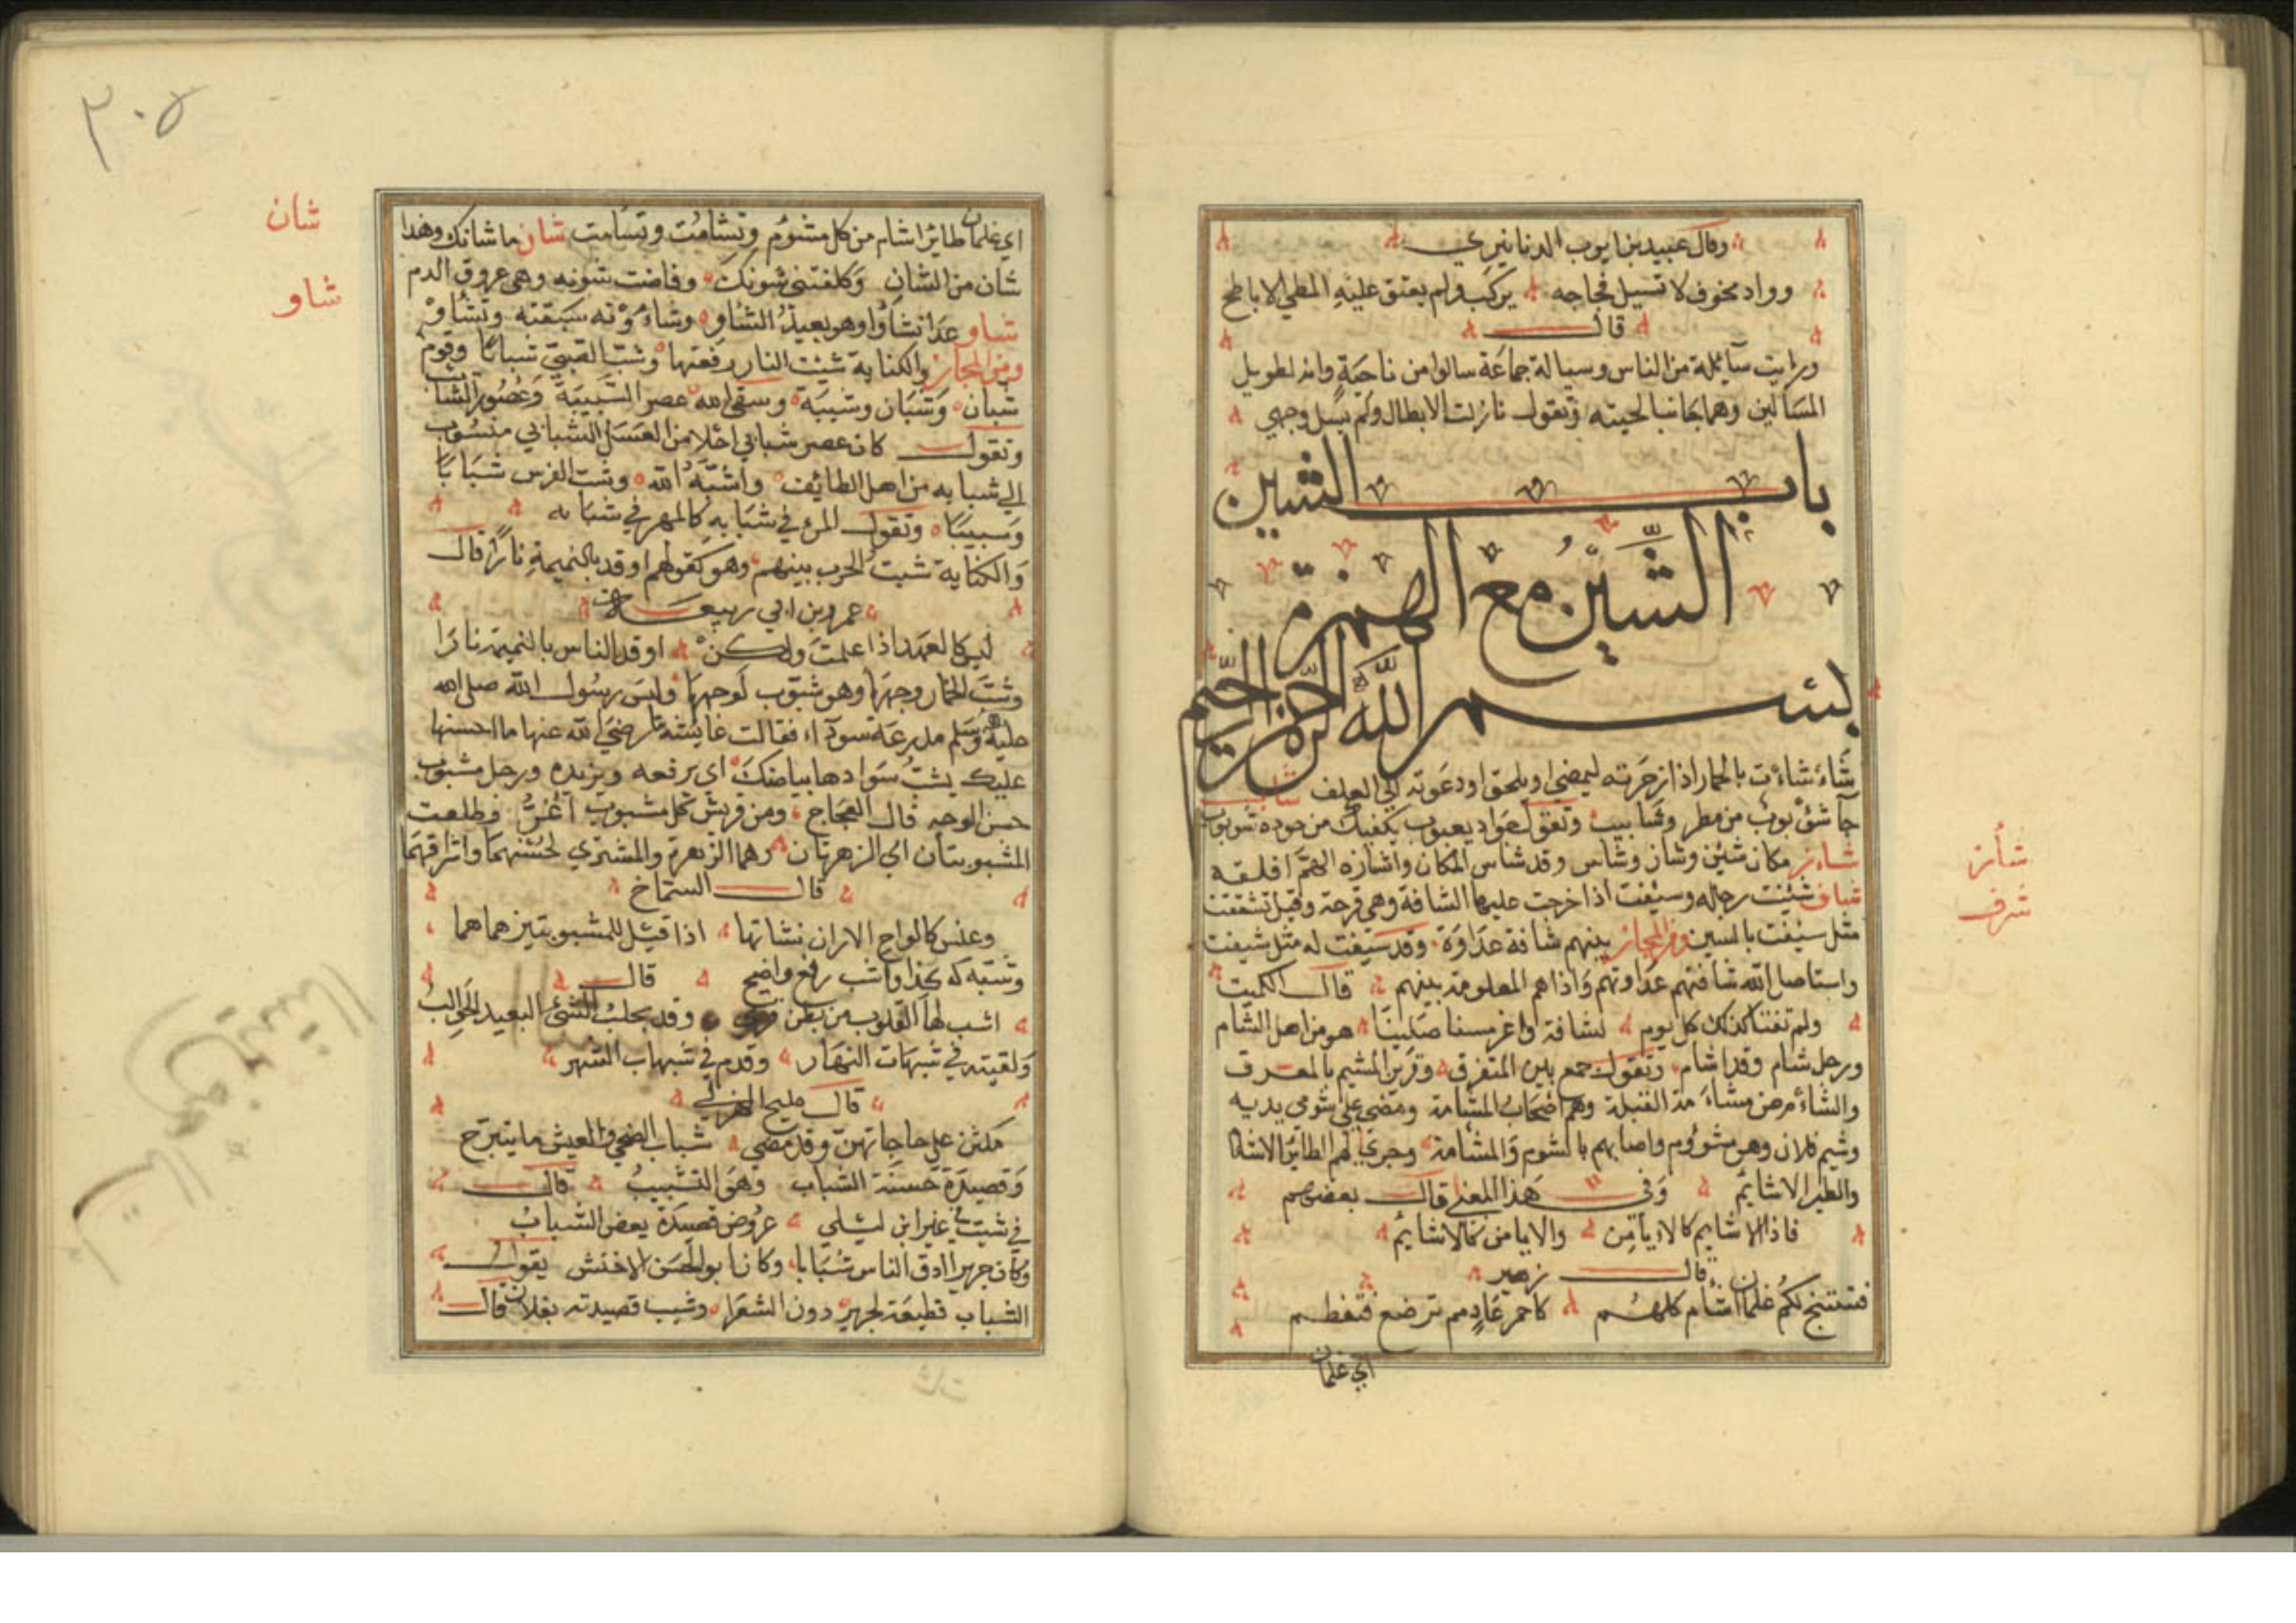 وقال عبيد بن ايوب الدنانيري
وواد مخوف لا تسيل فجاجه يركب ولم يعتق عليه المطي الاباطح
قال
ورايت سائلة من الناس وسيالة جماعة سالوا من ناحية وانه لطويل
المسالين وهما جانبا لحيته وتقول نازلت الابطال ولم يسل وجهي
باب الشين
الشين مع الهمزة
بسم الله الرحمن الرحيم
شاء شاءت بالحمار اذا زجرته ليمضي او يلحق او دعوته الي العلف
جا شؤبوب من مطر وشابيب وتقول جواد يعبوب يكفيك من جوده شوبوب
شاءز مكان شئز وشاز وشاس وقد شاس المكان واشازه الهم اقلقه
شاف شئفت رجله وسئفت اذا خرجت عليها الشافة وهي قرحة وقيل تشققت
مثل سئفت بالسين ومن المجاز بينهم شافة عداوة وقد سئفت له مثل شيفت
واستاصل الله شافتهم عداوتهم واذاهم المعلومة بينهم قال الكميت
ولم نفتا كذلك كل يوم لشافة واغر مسفا صلبينا هو من اهل الشام
ورجل شام وقد اشام وتقول جمع بين المتفرق وقرن المشيم بالمعرق
والشام من مشامة القبلة وهم اصحاب المشامة ومضي علي شومي يديه
وشيم فلان وهو مشؤوم واصابهم بالشوم والمشامة وجري لهم الطاير الاشام
والطير الاشايم وفي هذا المعني قال بعضهم
فاذا الاشايم كالايامن والايامن كالاشايم
قال زهير
فتنتج لكم غلمان اشام كلهم كاحمر عاد ثم ترضع فتفطم
اي غلمان
شأز
شرف
٣٠٥
شان
شاو
اي غلمان طائر اشام من كل مشوم وتشامت وتشامت شان ما شانك وهذا
شان من الشان وكلفتني شونك وفاضت شونه وهي عروق الدم
شاو عدا شاوا وهو بعيد الشاو وشاوته سبقته وتشاو
ومن المجاز والكناية شبت النار رفعتها وشب الصبي شبابا وقوم
شبان وشبان وشيبة وسقي الله عصر الشبيبة وعصور الشبايب
وتقول كان عصر شبابي احلا من العسل الشبابي منسوب
الي شبابه من اهل الطائف واشبه الله وشب الفرس شبابا
وشبيبا وتقول المرء في شبابه كالمهر في شبابه
والكناية شبت الحرب بينهم وهو كقولهم اوقد بالنميمة نارا قال
عمرو بن ابي ربيعة
ليس كالعهد اذا علمت ولكن اوقد الناس بالنميمة نارا
وشب الخمار وجهها وهو شبوب لوجهها ولبس رسول الله صلي الله
عليه وسلم مدرعة سوداء فقالت عايشة رضي الله عنها ما احسنها
عليك يشب سوادها بياضك اي يرفعه ويزيده ورجل مشبوب
حسن الوجه قال العجاج ومن قريش كل مشبوب اغر وطلعت
المشبوبتان اي الزهرتان وهما الزهرة والمشتري لحسنهما واشراقهما
قال الشماخ
وعنس كالواح الاران نشاتها اذا قيل للمشبوبتين هما هما
وتشبه له بكذا واشب رفع واضح قال
اشب لها القلوب من بطن وقد يجلب الشئ البعيد الجوالب
ولقيته في شبهات النهار وقدم في شبهاب الشهر
قال مليح الهزلي
مكثن علي حاجاتهن وقد مضي شباب الضحي والعيش ما يتبرح
وقصيدة حسنة الشباب وهو التشبيب قال
في شبيب غير ابن ليلي عروض قصيدة بعض الشباب
وكان جرير ادق الناس شبابا وكان ابو الحسن الاخفش يقول
الشباب قطيعة لجرير دون الشعرا وشبب قصيدته بفلان قال